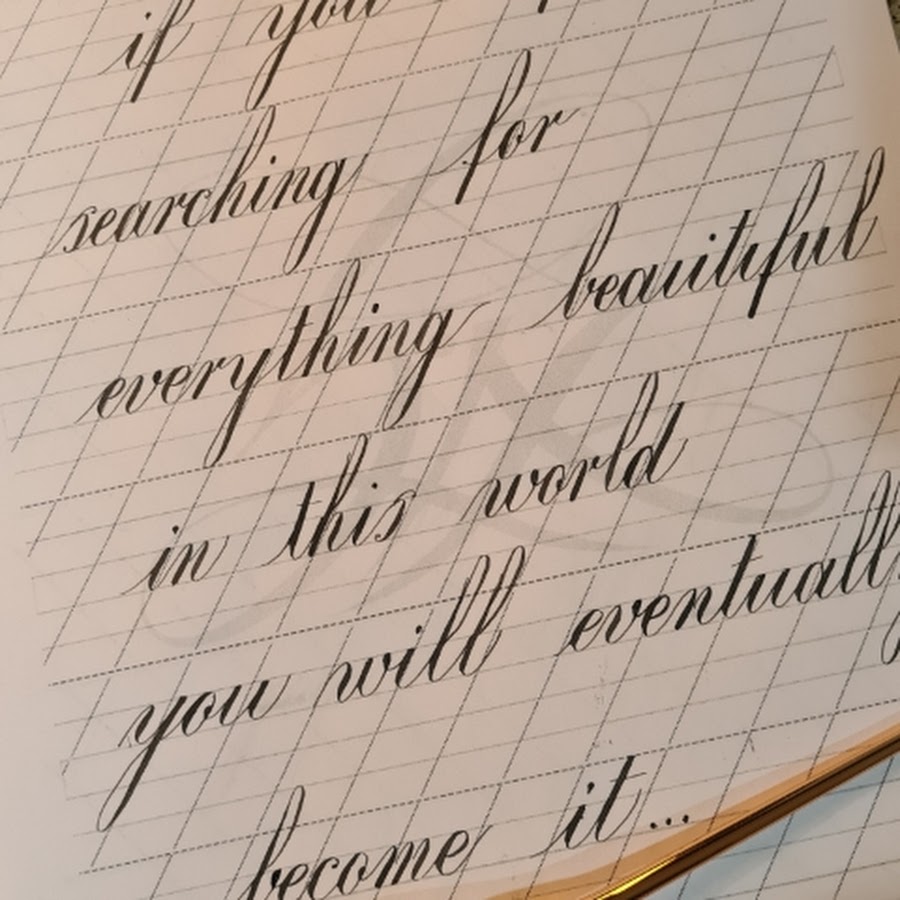 if you
searching for
everything beautiful
in this world
you will eventually
become it...